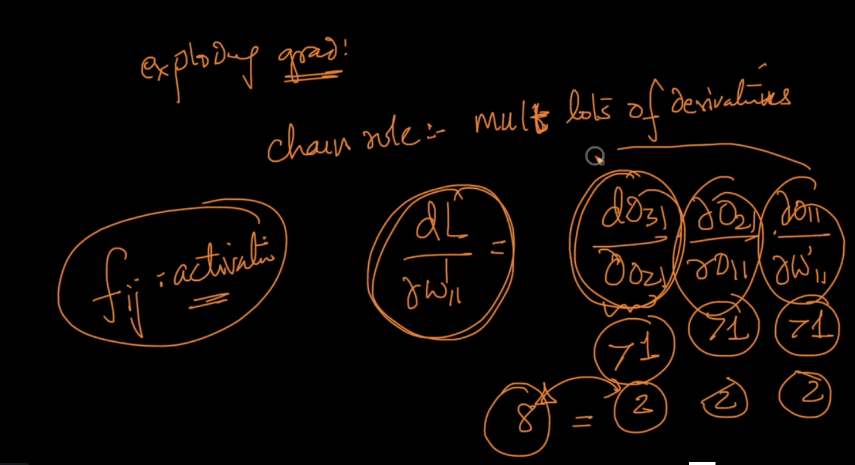 exploding grad:
chain rule:- mult lots of derivatives
fij : activatin
∂L/∂w¹₁₁ = ∂O31/∂O21 ∂O21/∂O11 ∂O11/∂w¹₁₁
>1 >1 >1
8 = 2 2 2